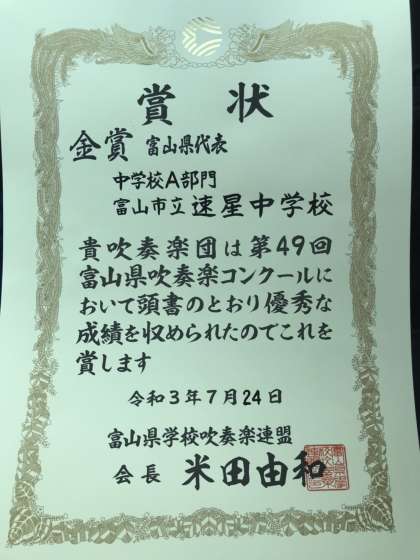 賞状
金賞 富山県代表
中学校A部門
富山市立速星中学校
貴吹奏楽団は第49回
富山県吹奏楽コンクールに
おいて頭書のとおり優秀な
成績を収められたのでこれを
賞します
令和3年7月24日
富山県学校吹奏楽連盟
会長 米田由和